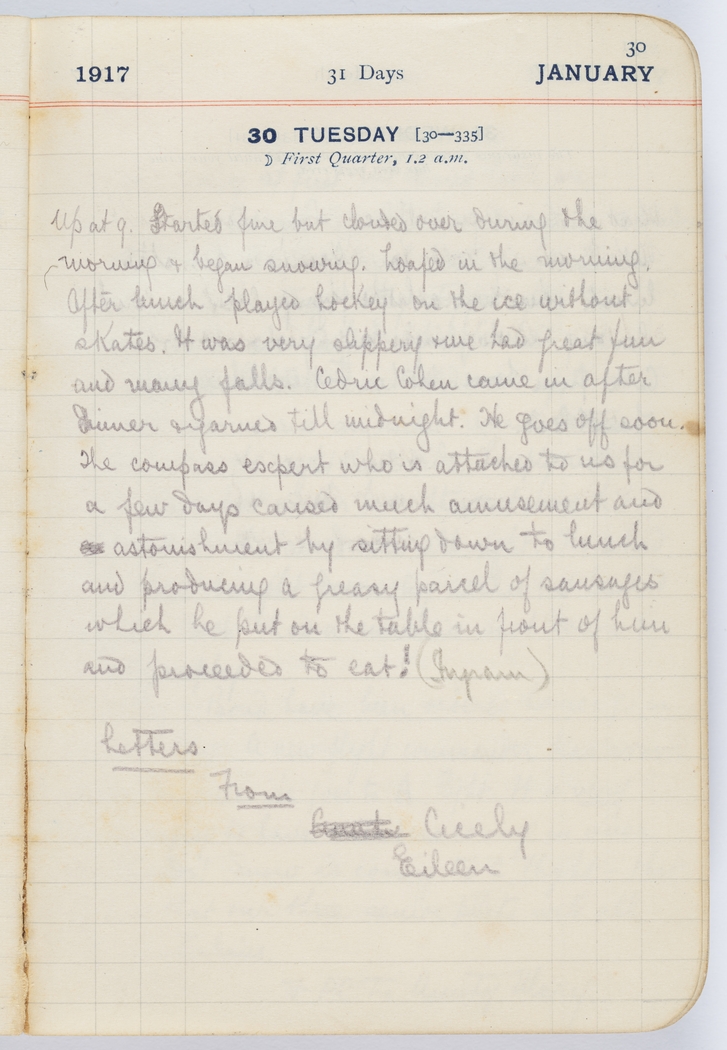 30
1917 31 Days JANUARY
30 TUESDAY [30—335]
☽ First Quarter, 1.2 a.m.
Up at 9. Started fine but clouded over during the
morning & began snowing. Loafed in the morning.
After lunch played hockey on the ice without
skates. It was very slippery & we had great fun
and many falls. Cedric Cohen came in after
dinner & yarned till midnight. He goes off soon.
The compass expert who is attached to us for
a few days caused much amusement and
astonishment by sitting down to lunch
and producing a greasy parcel of sausages
which he put on the table in front of him
and proceeded to eat! (Ingram)
Letters
From
Cicely
Eileen